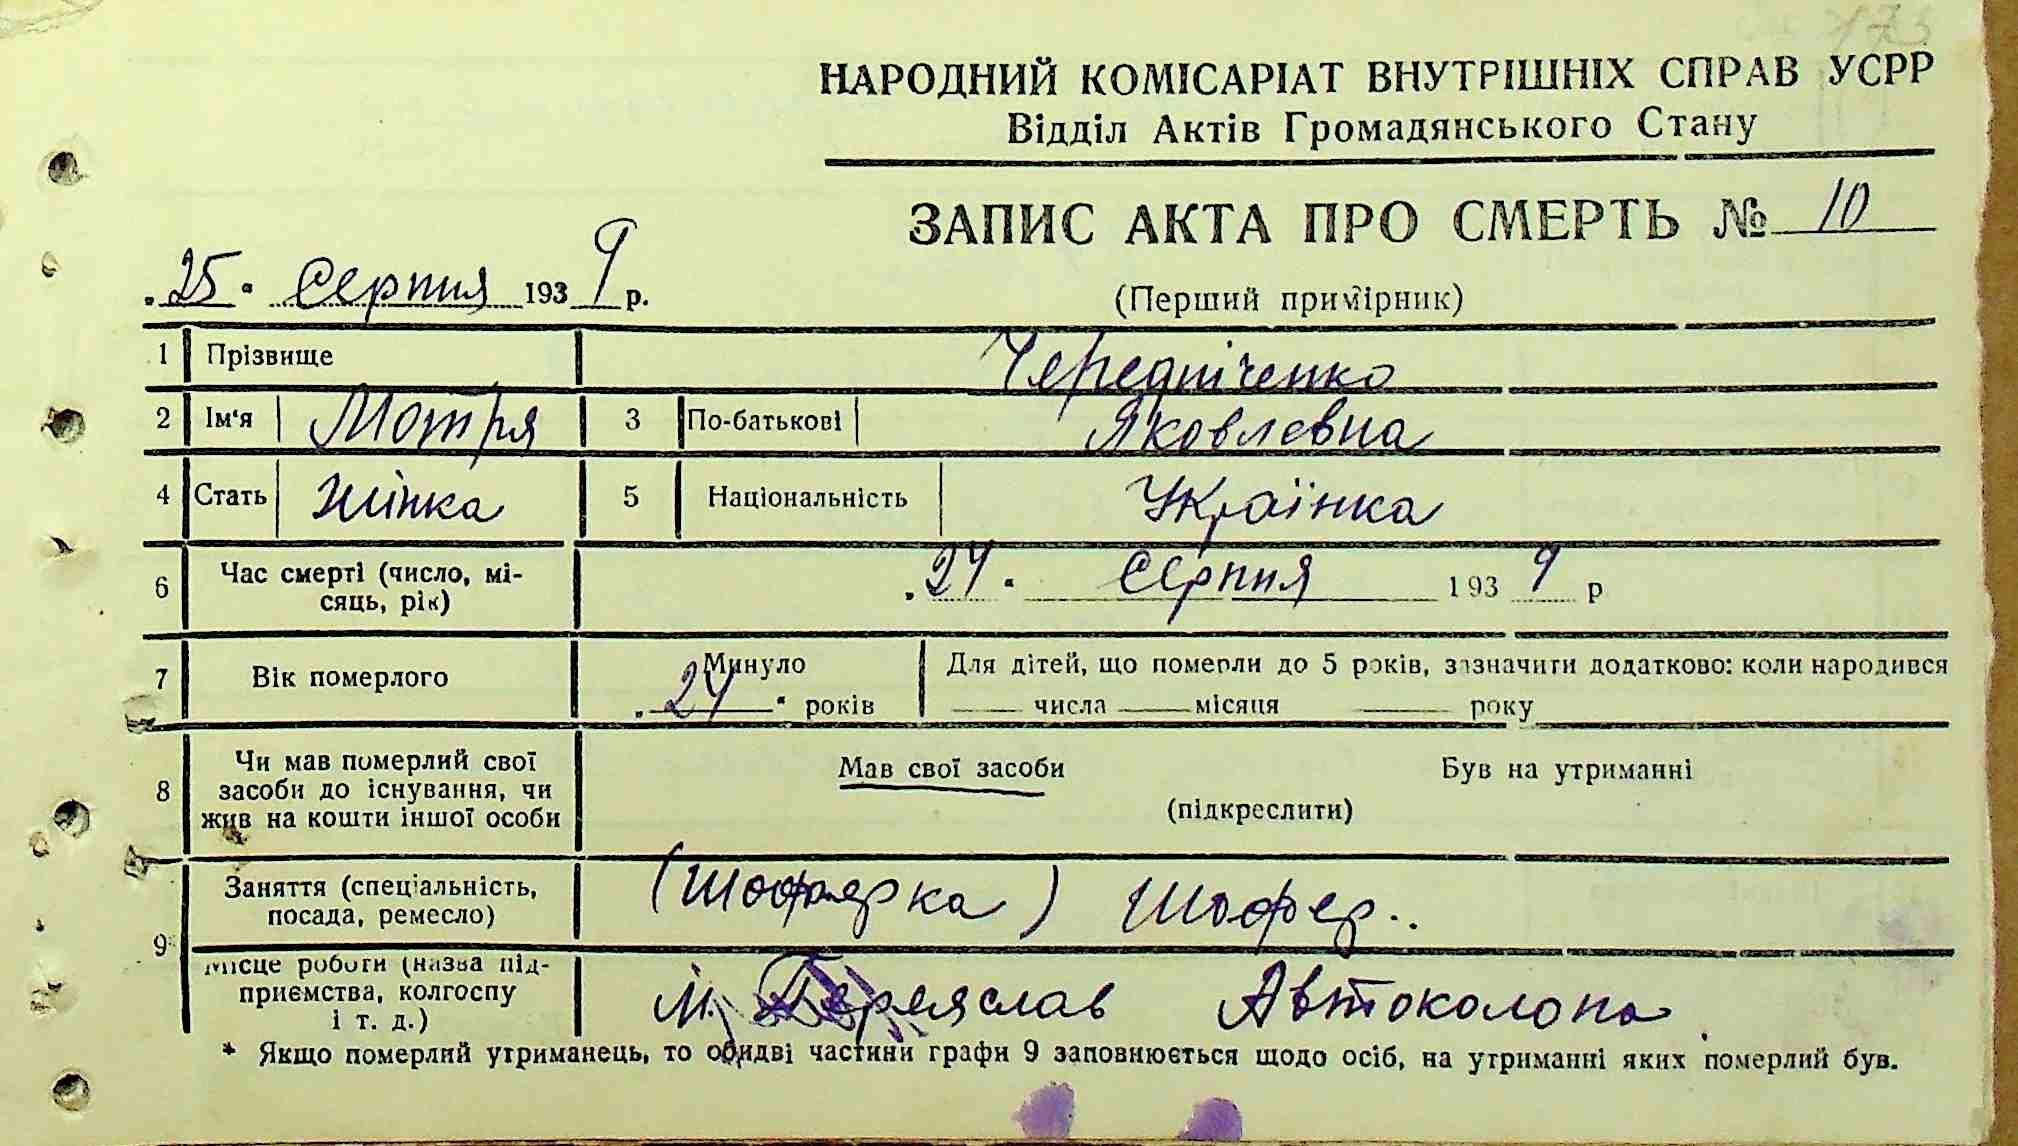 НАРОДНИЙ КОМІСАРІАТ ВНУТРІШНІХ СПРАВ УСРР
Відділ Актів Громадянського Стану
ЗАПИС АКТА ПРО СМЕРТЬ № 10
„25“ Серпня 1939 р.
(Перший примірник)
1 Прізвище Чередніченко
2 Ім‘я Мотря 3 По-батькові Яковлевна
4 Стать Жінка 5 Національність Українка
6 Час смерті (число, мі-
сяць, рік) „24“ Серпня 1939 р
7 Вік померлого Минуло „24“ років Для дітей, що померли до 5 років, зазначити додатково: коли народився
числа місяця року
8 Чи мав померлий свої
засоби до існування, чи
жив на кошти іншої особи
Мав свої засоби Був на утриманні
(підкреслити)
9 Заняття (спеціальність,
посада, ремесло) (Шофярка) Шофер.
Місце роботи (назва під-
приємства, колгоспу
і т. д.) м. Переяслав Автоколона
* Якщо померлий утриманець, то обидві частини графи 9 заповнюється щодо осіб, на утриманні яких померлий був.